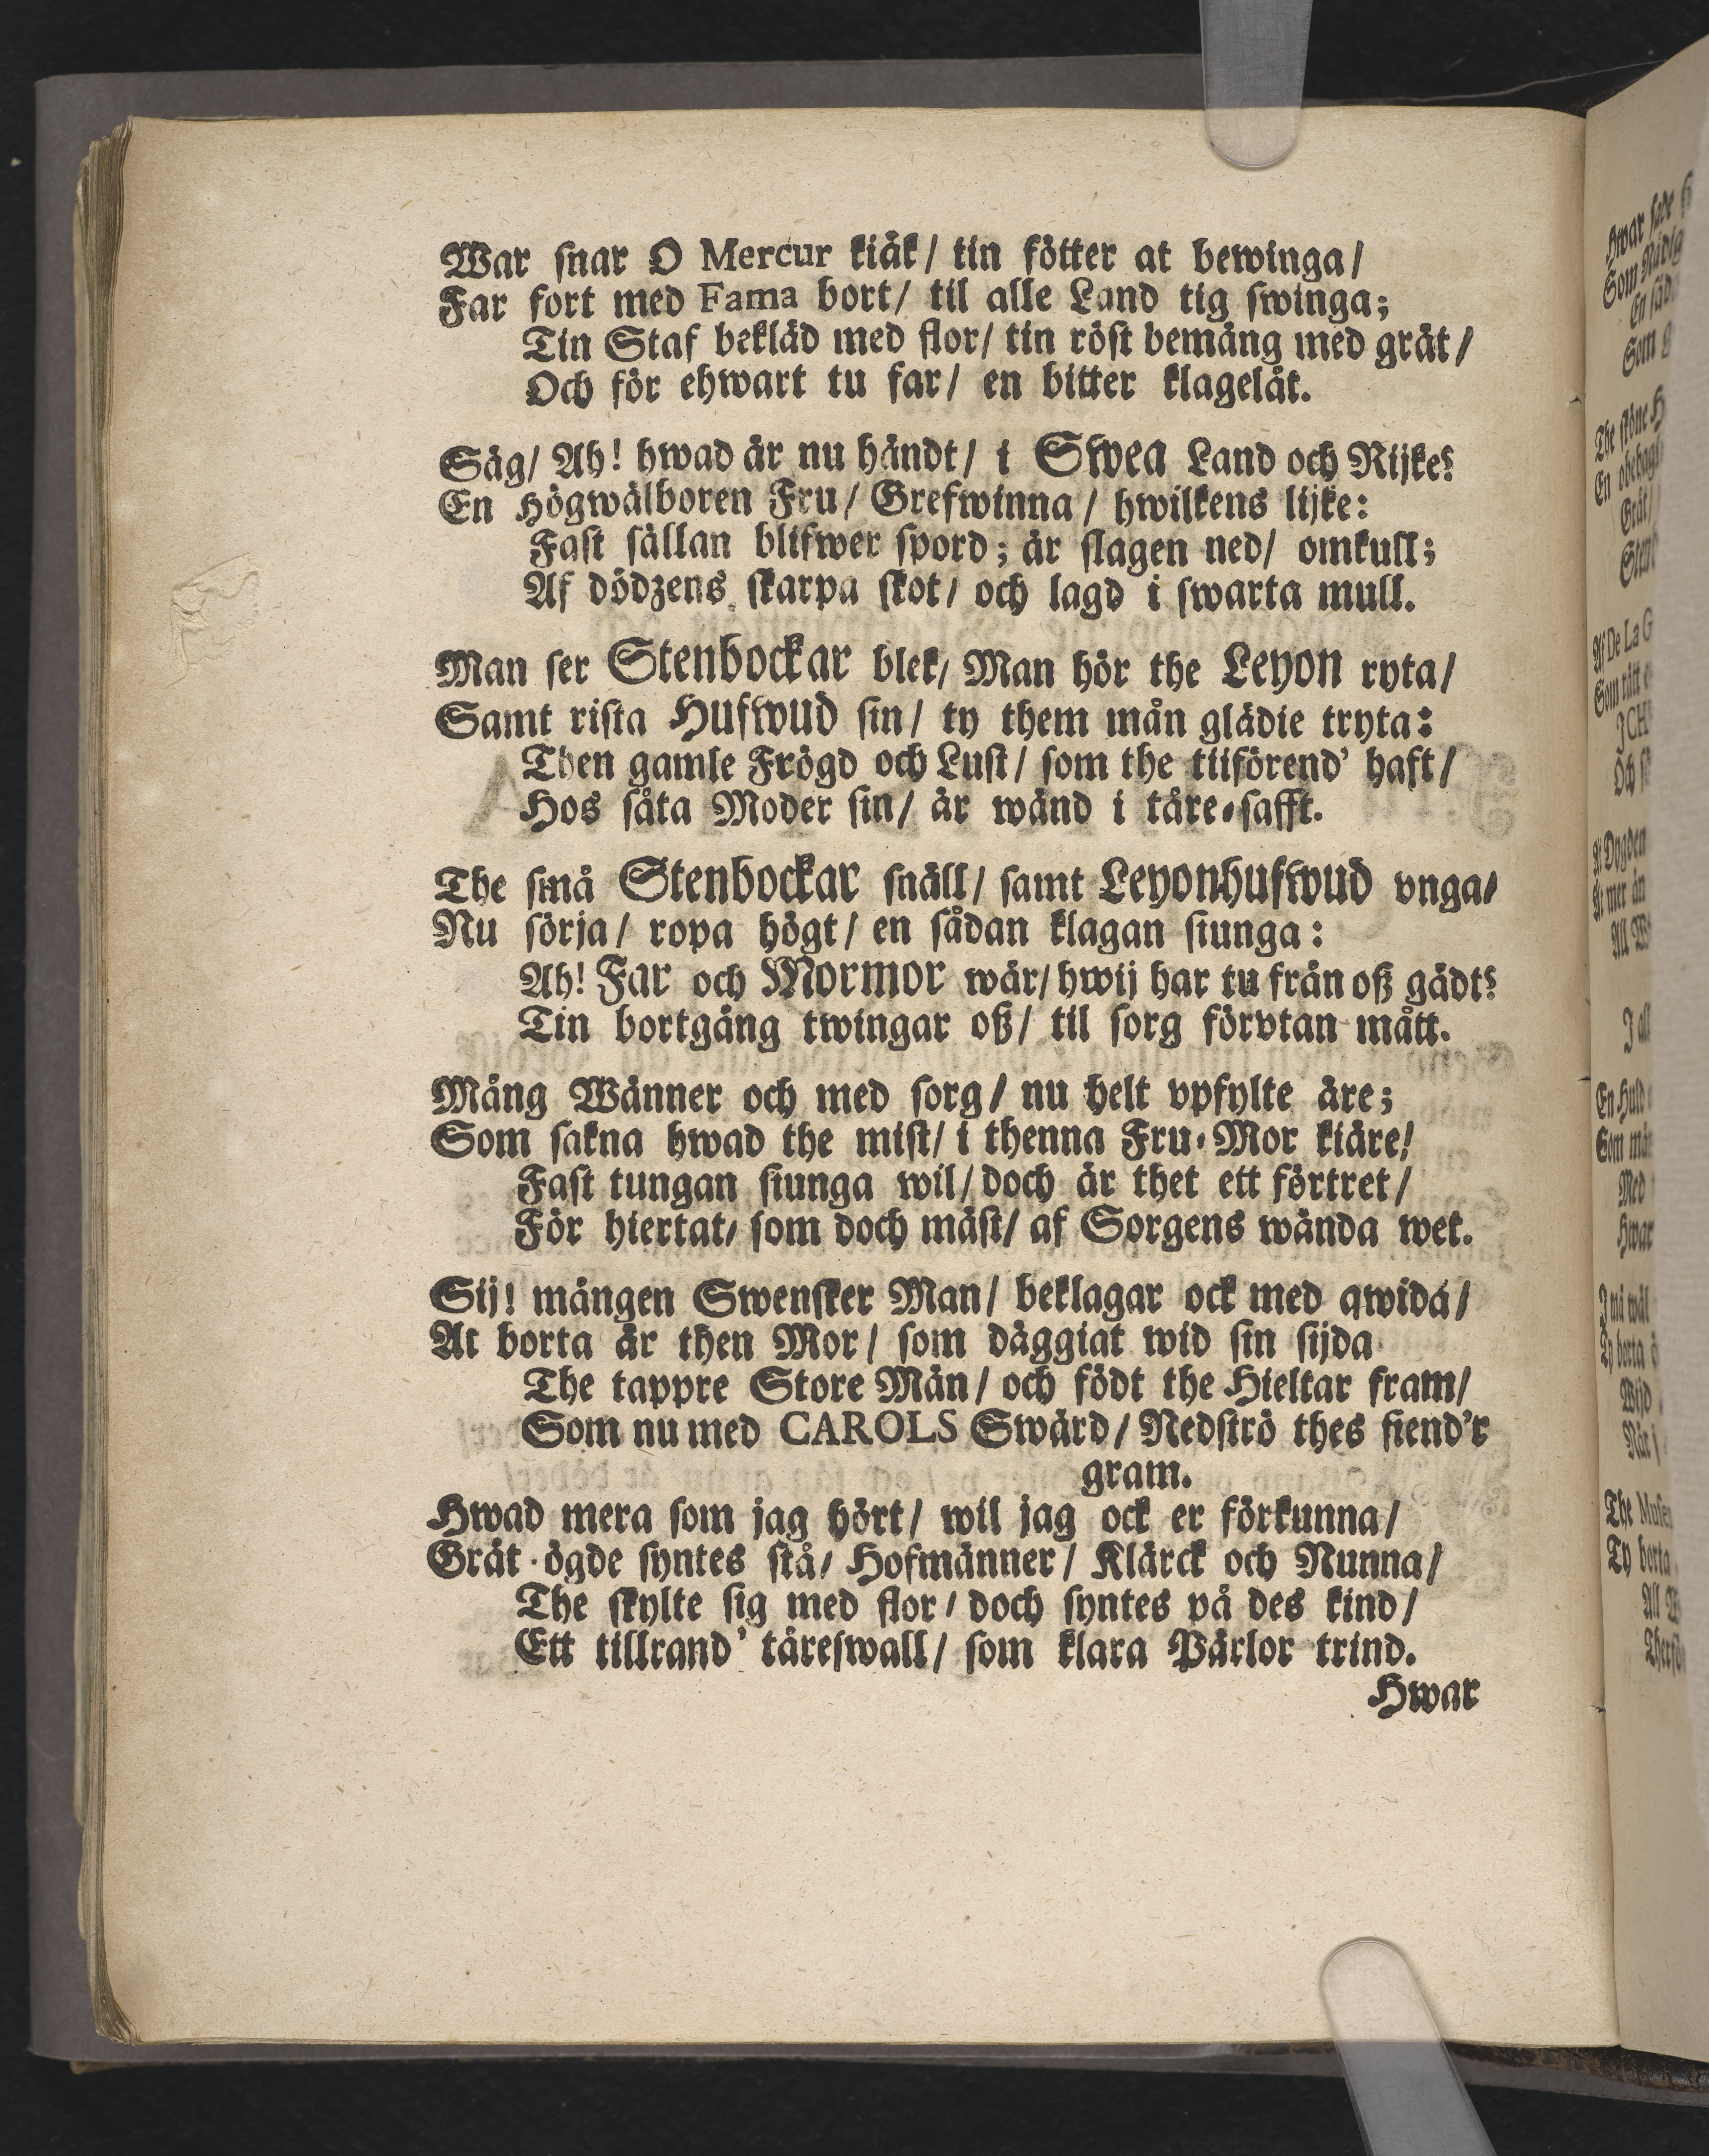 War snar O Mercur kiäk/ tin fötter at bewinga/
Far fort med Fama bort/ til alle Land tig swinga;
Tin Staf bekläd med flor/ tin röst bemäng med grät/
Och för ehwart tu far/ en bitter klagelåt.
Säg/ Ah! hwad är nu händt/ i Swea Land och Rijke?
En Högwälboren Fru/ Grefwinna/ hwilkens lijke:
Fast sällan blifwer spord; är slagen ned/ omkull;
Af dödzens skarpa skot/ och lagd i swarta mull.
Man ser Stenbockar blek/ Man hör the Leyon ryta/
Samt rista Hufwud sin/ ty them mån glädie tryta:
Then gamle Frögd och Lust/ som the tilförend' haft/
Hos såta Moder sin/ är wänd i tåre-safft.
The små Stenbockar snäll/ samt Leyonhufwud vnga/
Nu sörja/ ropa högt/ en sådan klagan siunga:
Ah! Far och Mormor wår/ hwij har tu från oß gådt?
Tin bortgång twingar oß/ til sorg förvtan mått.
Mång Wänner och med sorg/ nu helt vpfylte äre;
Som sakna hwad the mist/ i thenna Fru-Mor kiäre!
Fast tungan siunga wil/ doch är thet ett förtret/
För hiertat/ som doch mäst/ af Sorgens wända wet.
Sij! mången Swensker Man/ beklagar ock med qwida/
At borta är then Mor/ som däggiat wid sin sijda
The tappre Store Män/ och födt the Hieltar fram/
Som nu med CAROLS Swärd/ Nedströ thes fiend'r
gram.
Hwad mera som jag hört/ wil jag ock er förkunna/
Gråt-ögde syntes stå/ Hofmänner/ Klärck och Nunna/
The skylte sig med flor/ doch syntes på des kind/
Ett tillrand' täreswall/ som klara Pärlor trind.
Hwar